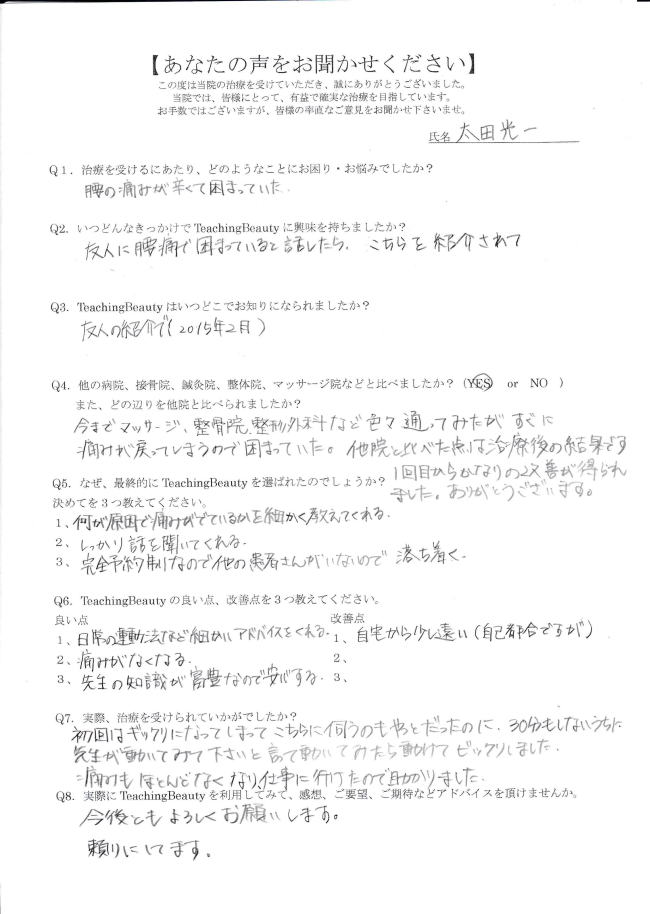 【あなたの声をお聞かせください】
この度は当院の治療を受けていただき、誠にありがとうございました。
当院では、皆様にとって、有益で確実な治療を目指しています。
お手数ではございますが、皆様の率直なご意見をお聞かせ下さいませ。
氏名 太田光一
Q1. 治療を受けるにあたり、どのようなことにお困り・お悩みでしたか？
腰の痛みが辛くて困まっていた.
Q2. いつどんなきっかけで TeachingBeauty に興味を持ちましたか？
友人に腰痛で困まっていると話したら、こちらを紹介されて
Q3. TeachingBeauty はいつどこでお知りになられましたか？
友人の紹介で(2015年2月)
Q4. 他の病院、接骨院、鍼灸院、整体院、マッサージ院などと比べましたか？ （YES or NO ）
また、どの辺りを他院と比べられましたか？
今までマッサージ、整骨院、整形外科など色々通ってみたがすぐに
痛みが戻ってしまうので困まっていた。他院と比べた点は治療後の結果です
1回目からかなりの改善が得られ
ました。ありがとうございます。
Q5. なぜ、最終的に TeachingBeauty を選ばれたのでしょうか？
決めてを３つ教えてください。
１、何が原因で痛みがでているかを細かく教えてくれる.
２、しっかり話を聞いてくれる.
３、完全予約制なので他の患者さんがいないので落ち着く.
Q6. TeachingBeauty の良い点、改善点を３つ教えてください。
良い点 改善点
１、日常の運動法など細かいアドバイスをくれる. １、自宅から少し遠い(自己都合ですが)
２、痛みがなくなる. ２、
３、先生の知識が富豊なので安心する. ３、
Q7. 実際、治療を受けられていかがでしたか？
初回はギックリになってしまってこちらに伺うのもやっとだったのに、30分もしないうちに
先生が動いてみて下さいと言って動いてみたら動けてビックリしました.
痛みもほとんどなくなり、仕事に行けたので助かりました.
Q8. 実際に TeachingBeauty を利用してみて、感想、ご要望、ご期待などアドバイスを頂けませんか。
今後ともよろしくお願いします。
頼りにしてます。